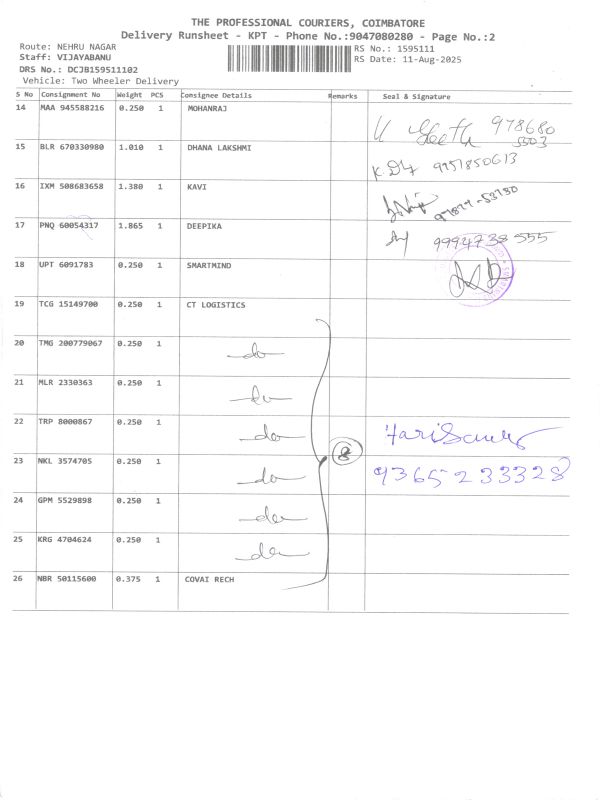 THE PROFESSIONAL COURIERS, COIMBATORE
Delivery Runsheet - KPT - Phone No.:9047080280 - Page No.:2
Route: NEHRU NAGAR
RS No.: 1595111
Staff: VIJAYABANU
RS Date: 11-Aug-2025
DRS No.: DCJB159511102
Vehicle: Two Wheeler Delivery
S No Consignment No Weight PCS Consignee Details Remarks Seal & Signature
14 MAA 945588216 0.250 1 MOHANRAJ
978680
5503
15 BLR 670330980 1.010 1 DHANA LAKSHMI
9951850613
16 IXM 508683658 1.380 1 KAVI
17 PNQ 60054317 1.865 1 DEEPIKA 9994738555
18 UPT 6091783 0.250 1 SMARTMIND
19 TCG 15149700 0.250 1 CT LOGISTICS
20 TMG 200779067 0.250 1 do
21 MLR 2330363 0.250 1 do
22 TRP 8000867 0.250 1 do
8
23 NKL 3574705 0.250 1 do 9365233328
24 GPM 5529898 0.250 1 do
25 KRG 4704624 0.250 1 do
26 NBR 50115600 0.375 1 COVAI RECH